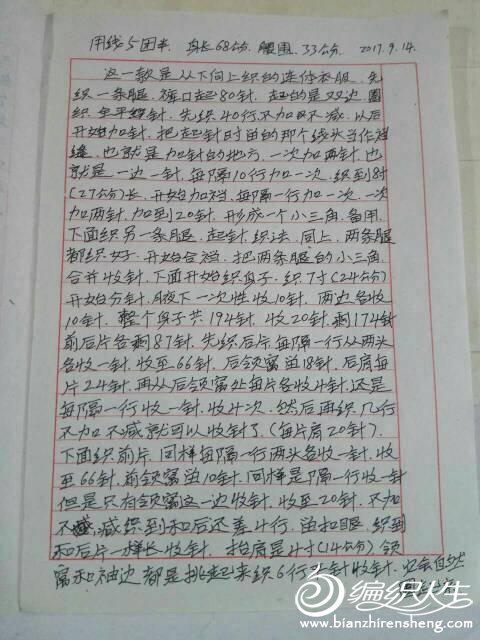 用线5团半. 身长68公分. 腰围. 33公分. 2017.9.14.
这一款是从下向上织的连体衣服. 先
织一条腿. 裤口起80针. 起的是双边. 圈
织. 全平织针. 先织40行不加也不减. 以后
开始加针. 把起针时留的那个线头当作裆
缝. 也就是加针的地方. 一次加两针. 也
就是一边一针. 每隔10行加一次. 织到8寸
(27公分)长. 开始加裆. 每隔一行加一次. 一次
加两针. 加到20针. 形成一个小三角. 备用.
下面织另一条腿. 起针. 织法. 同上. 两条腿
都织好. 开始合裆. 把两条腿的小三角.
合并收针. 下面开始织身子. 织7寸(24公分)
开始分针. 腋下一次性收10针. 两边各收
10针. 整个身子共194针. 收20针. 剩174针
前后片各剩87针. 先织后片. 每隔一行从两头
各收一针. 收至66针. 后领窝留18针. 后肩每
片24针. 再从后领窝处每片各收4针. 还是
每隔一行收一针. 收4次. 然后再织几行
不加不减就可以收针了. (每片肩20针).
下面织前片. 同样每隔一行两头各收一针. 收
至66针. 前领窝留10针. 同样是隔一行收一针
但是只有领窝这一边收针. 收至20针. 不加
不减织到和后还差4行. 留扣眼. 织到
和后片一样长收针. 抬肩是4寸(14公分) 领
窝和袖边都是挑起来织6行上针收针. 它会自然
编织人生
www.bianzhirensheng.com